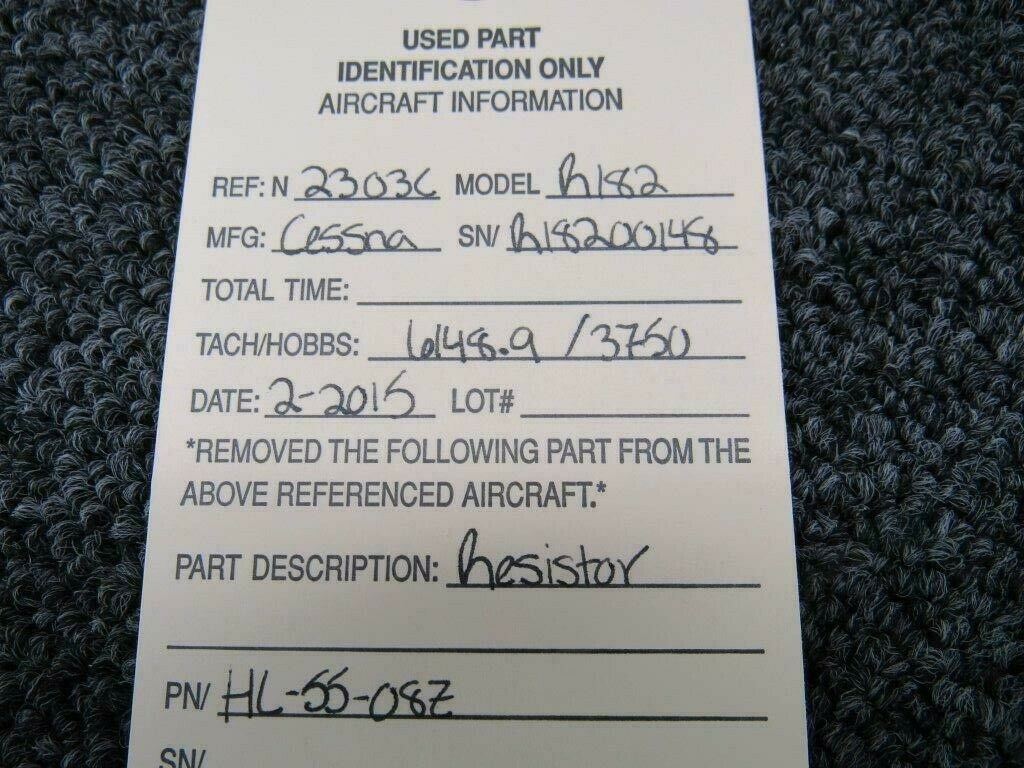 USED PART
IDENTIFICATION ONLY
AIRCRAFT INFORMATION
REF: N 2303C MODEL R182
MFG: Cessna SN/ R18200148
TOTAL TIME:
TACH/HOBBS: 6148.9 / 3750
DATE: 2-2015 LOT#
*REMOVED THE FOLLOWING PART FROM THE
ABOVE REFERENCED AIRCRAFT.*
PART DESCRIPTION: Resistor
PN/ HL-55-08Z
SN/